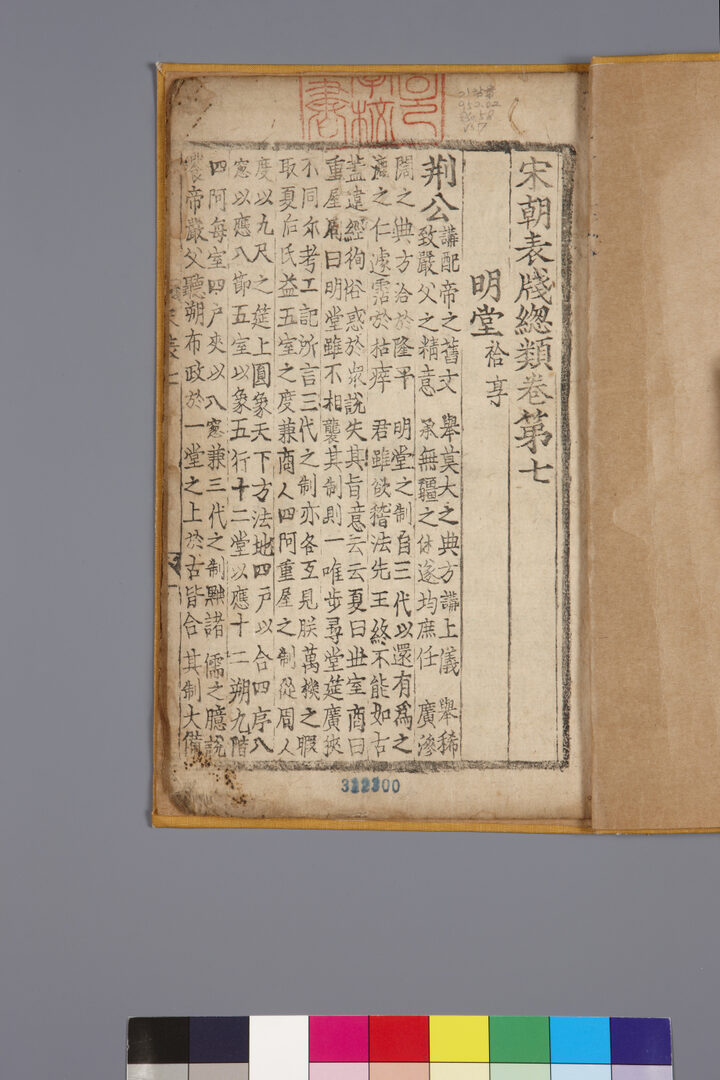 宋朝表牋緫類卷第七
明堂 祫享
荆公
講配帝之舊文 舉莫大之典方講上儀 舉稀
致嚴父之精意 承無疆之休遂均庶任 廣滲
闊之典方洽於隆平 明堂之制自三代以還有為之
漉之仁遽霑於枯瘁 君雖欲稽法先王終不能如古
蓋違經徇俗惑於衆說失其旨意云云夏曰世室商曰
重屋周曰明堂雖不相襲其制則一唯步尋堂筵廣狹
不同尔考工記所言三代之制亦各互見朕萬機之暇
取夏后氏益五室之度兼商人四阿重屋之制從周人
度以九尺之筵上圓象天下方法地四戸以合四序八
窓以應八節五室以象五行十二堂以應十二朔九階
四阿每室四戸夾以八窓兼三代之制黜諸 儒之臆說
帝嚴父聽朔布政於一堂之上於古皆合 其制大備
312300